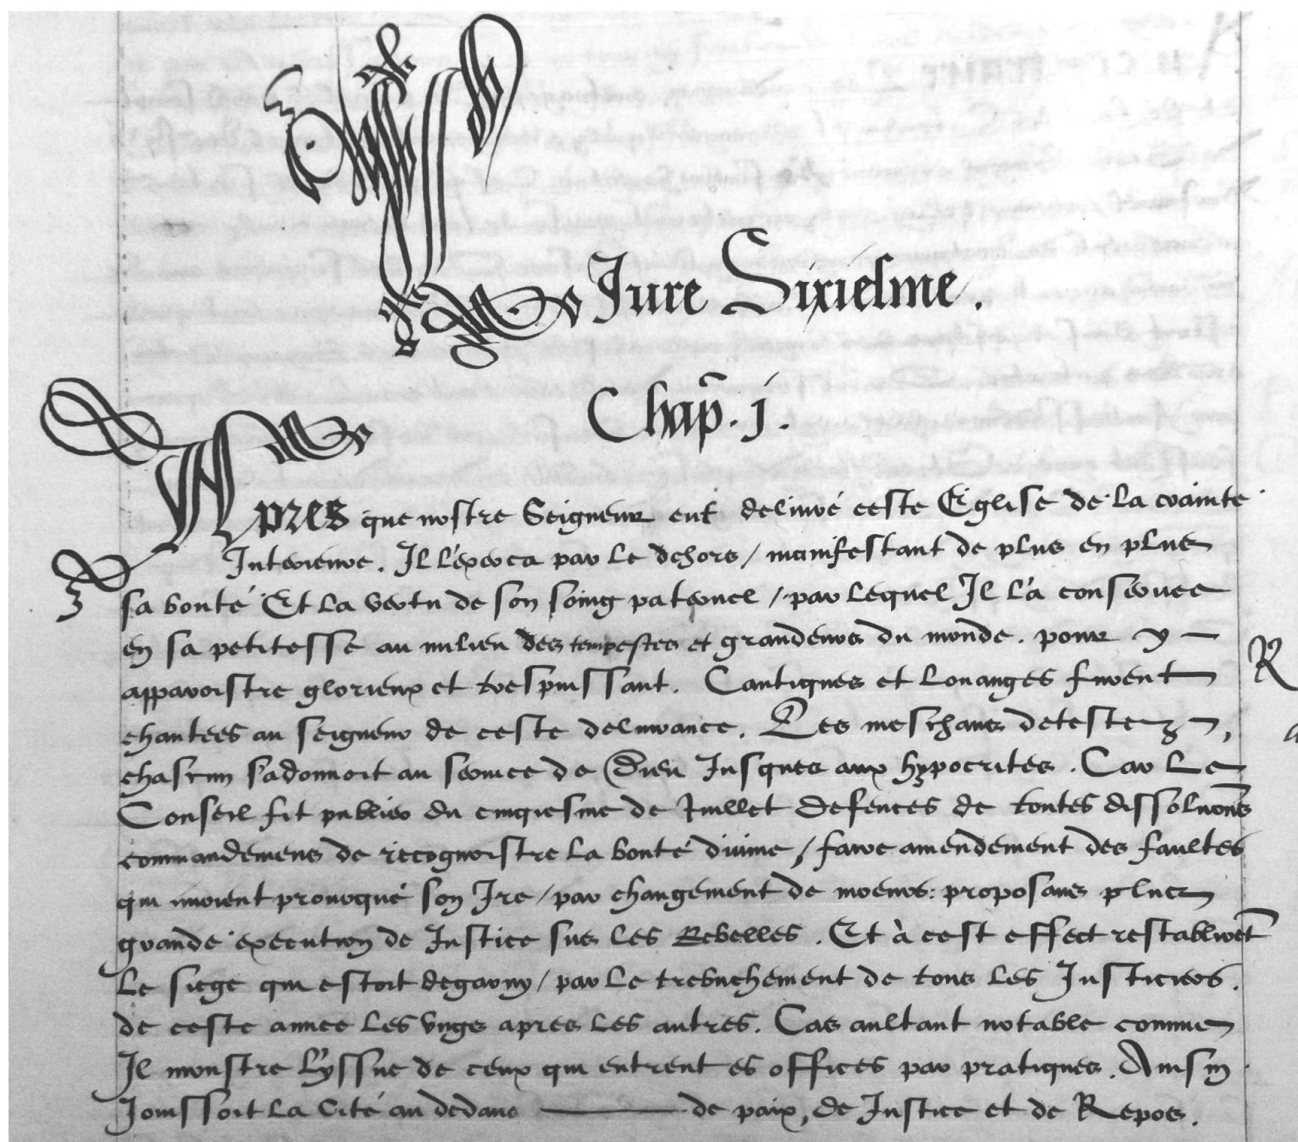 Liure Sixiesme.
Chap. j.
Apres que nostre Seigneur eut deliuré ceste Eglise de la crainte
Interieure. Il l'exerca par le dehors / manifestant de plus en plus
sa bonté Et la vertu de son soing paternel / par lequel Il l'a conseruee
en sa petitesse au milieu des tempestes et grandeurs du monde. pour y
apparoistre glorieux et trespuissant. Cantiques et Louanges furent
chantees au seigneur de ceste deliurance. Les meschans detestez,
chascun sadonnoit au seruice de Dieu Jusques aux hypocrites. Car Le
Conseil fit publier du cinquiesme de Juillet defences de toutes dissoluons
commandemens de recognoistre la bonté diuine / faire amendement des faultes
qui auoient prouoqué son Ire / par changement de moeurs: proposans plus
grande execution de Justice sus les Rebelles. Et à cest effect restablirēt
Le siege qui estoit degarny / par le trebuchement de tous les Justiciers.
de ceste annee les vngs apres les autres. Cas aultant notable comme
Il monstre l'yssue de ceux qui entrent es offices par pratiques. Ainsin
Jouissoit la Cité au dedans de paix, de Justice et de Repos.
R